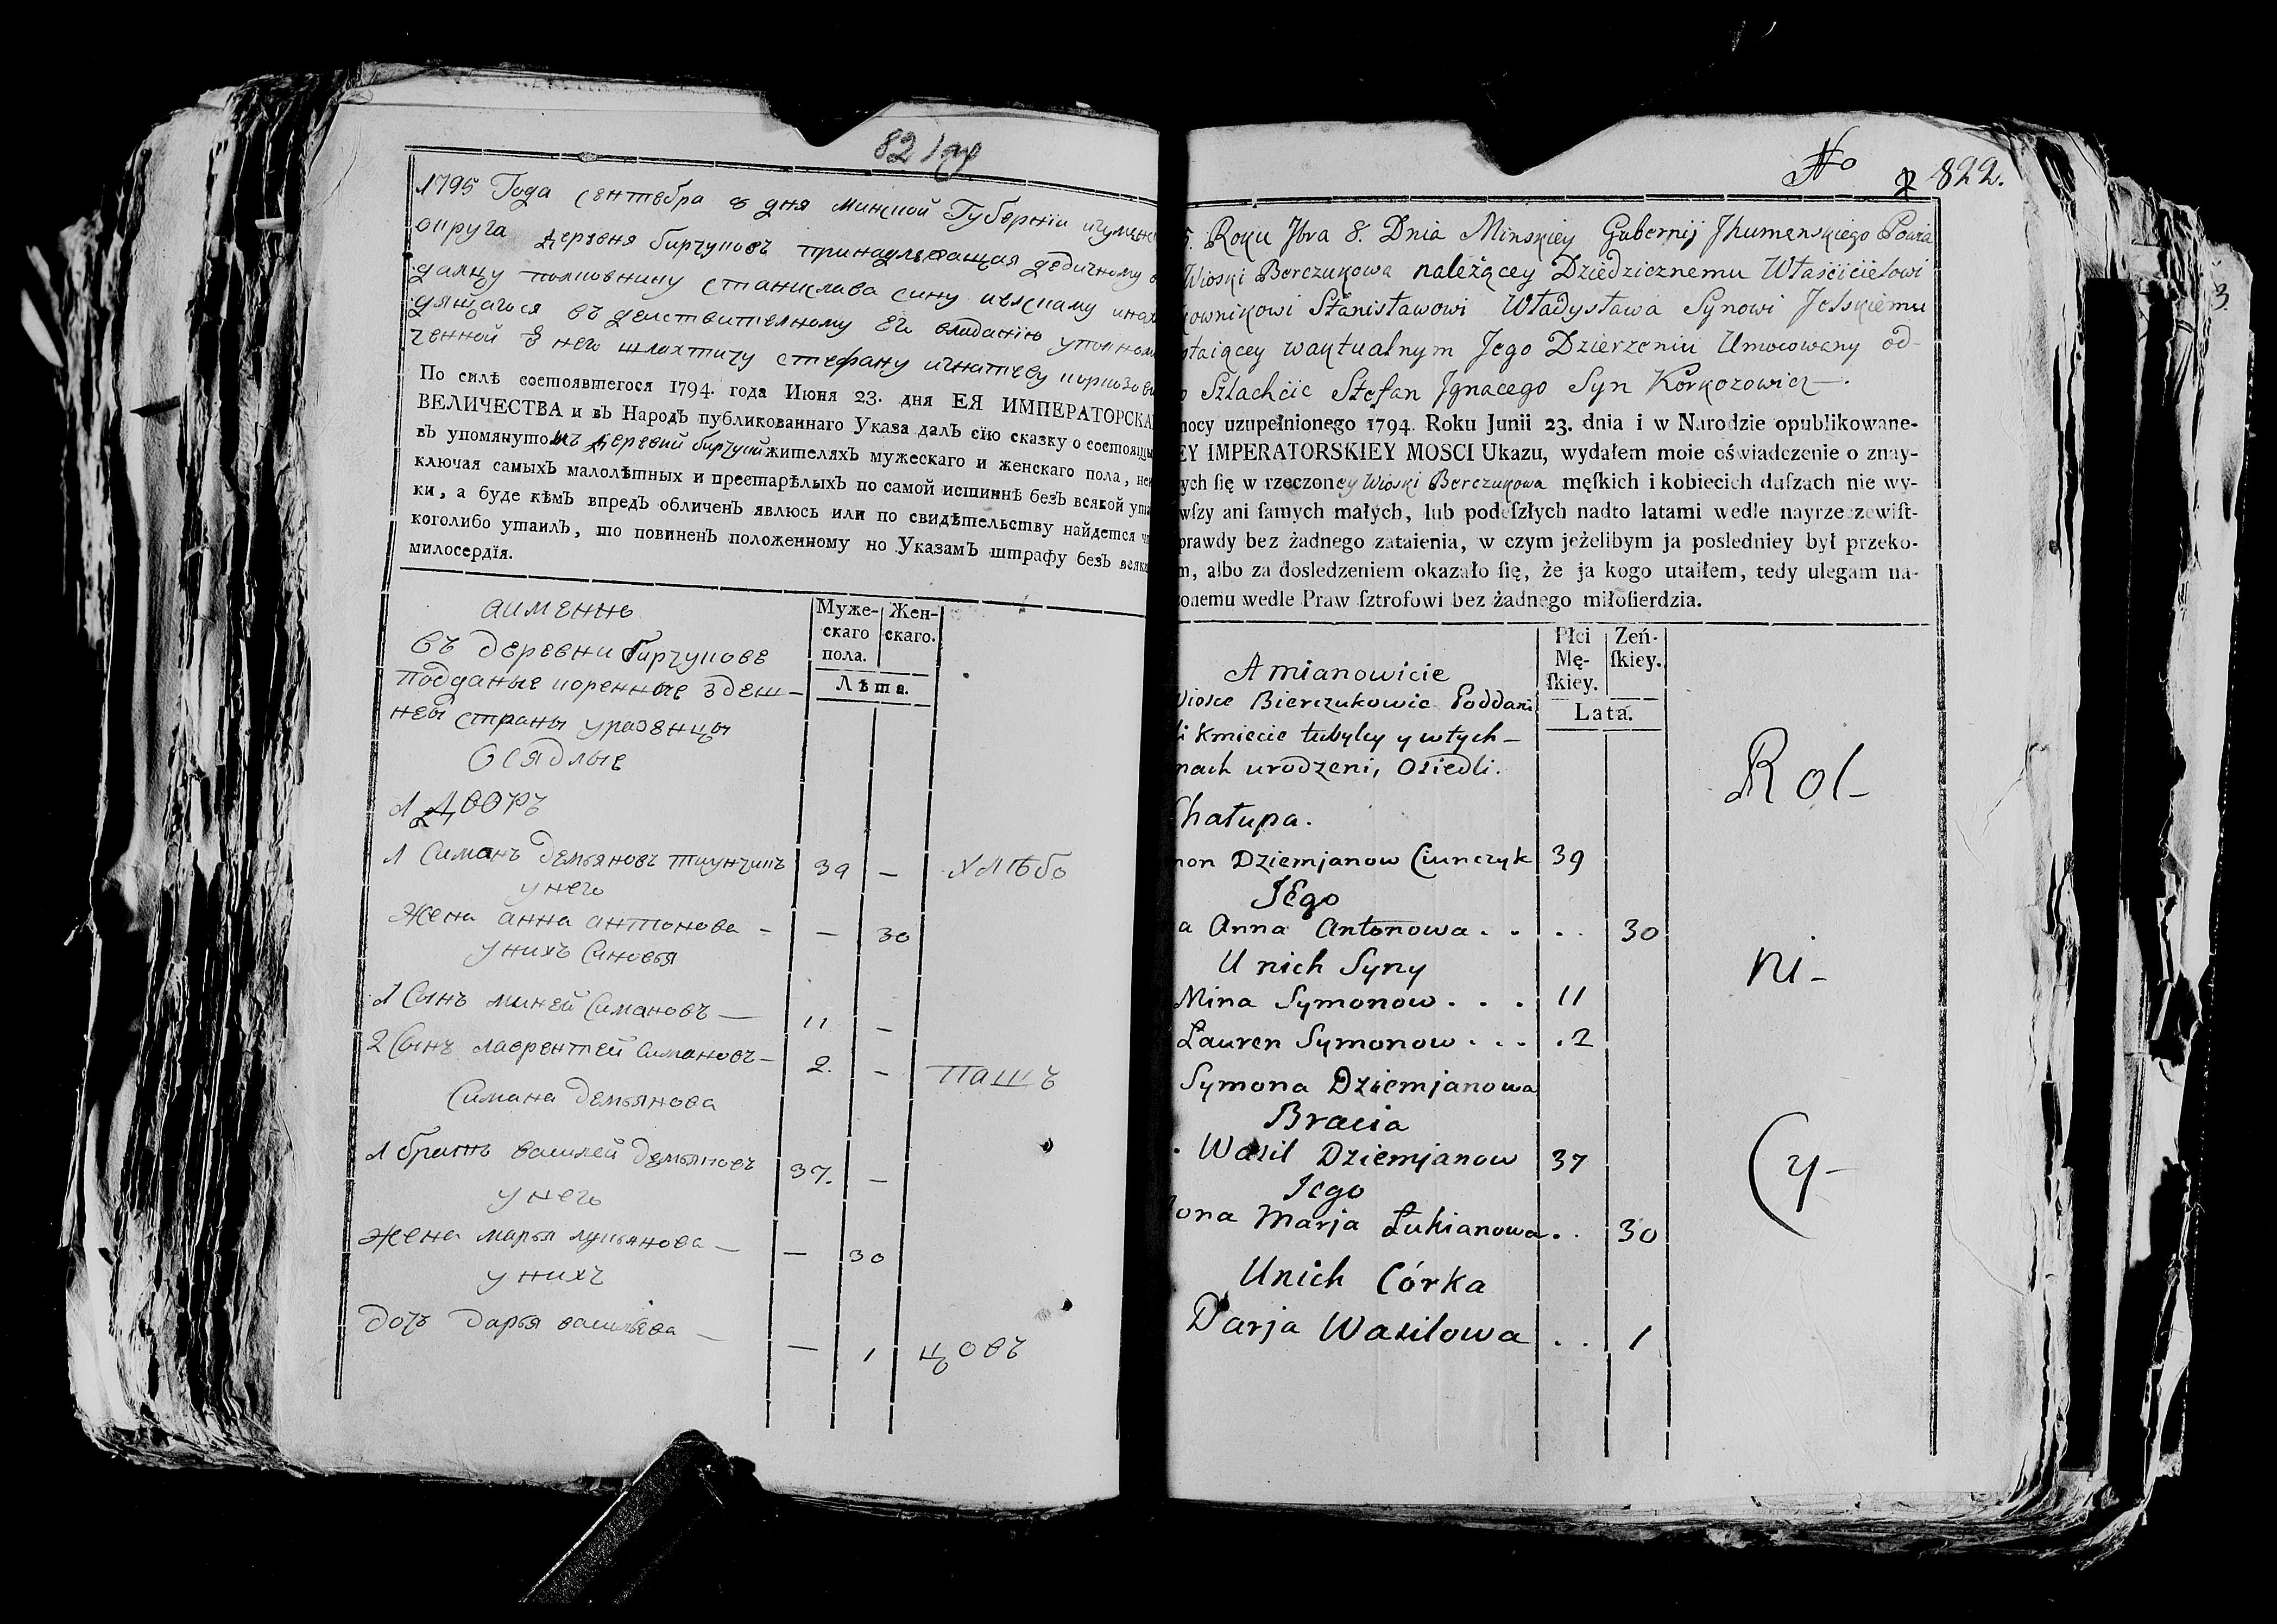 82
1795 Года сентебра 8 дня минской Губерніи игумен
округа деревня бирчуковъ принадлежащая дедичному
станислава сину
въ действителному его владанію уполном
ченной  него шляхтичу стефану игнатьеву
По силѣ состоявшегося 1794. года Июня 23. дня ЕЯ ИМПЕРАТОРСКА
ВЕЛИЧЕСТВА и въ Народъ публикованнаго Указа далъ сїю сказку о состоящи
въ упомянутомъ деревни жителяхъ мужескаго и женскаго пола,
ключая самыхъ малолѣтных и престарѣлыхъ по самой истиннѣ безъ всякой ута
ки, а буде кѣмъ впредъ обличенъ явлюсь или по свидѣтельству найдется
коголибо утаилъ, то повиненъ положенному но Указамъ штрафу безъ всяк
милосердїя.
аименно
въ деревни бирчукове
подданые коренные здеш-
ней страны уразенцы
осядлые
Муже-
скаго
пола.
Жен-
скаго.
Лѣта.
1 дворъ
1 Симанъ демьяновъ тиунчикъ 39 — хлѣбо
у него
жена анна антонова - — 30
у нихъ синовья
1 Сынъ миней Симановъ — 11 —
2 Сынъ лаврентей Симановъ — 2. — пашъ
Симана демьянова
1 братъ василей демьяновъ 37. —
у него
жена марья лукьянова — — 30
у нихъ
дочь дарья васильева — — 1 цовъ
No 822.
5. Roku Jbra 8. Dnia Minskiey Gubernij Jhumenskiego Powia
Wioski Berczukowa należącey Dziedzicznemu Właścicielowi
kownikowi Stanisławowi Władysława Synowi Jelskiemu
staiącey waktualnym Jego Dzierzeniu Umocowany od-
o Szlachcic Stefan Jgnacego Syn Korkozowicz —.
mocy uzupełnionego 1794. Roku Junii 23. dnia i w Narodzie opublikowane-
EY IMPERATORSKIEY MOSCI Ukazu, wydałem moie oświadczenie o znay-
ych ſię w rzeczoney Wioski Berczukowa męſkich i kobiecich duſzach nie wy-
wſzy ani ſamych małych, lub podeſzłych nadto latami wedle nayrzeczewiſt-
prawdy bez żadnego zataienia, w czym jeżelibym ja posledniey był przeko-
m, albo za dosledzeniem okazało ſię, że ja kogo utaiłem, tedy ulegam na-
onemu wedle Praw ſztrofowi bez żadnego miłoſierdzia.
Amianowicie
Wiosce Bierczukowie Poddani
i kmiecie tubylcy y wtych —
nach urodzeni, Osiedli.
Płci
Mę-
ſkiey.
Zeń-
ſkiey.
Lata.
Rol-
Chałupa.
mon Dziemjanow Ciunczyk 39
Jego
a Anna Antonowa . . . . 30
U nich Syny
ni-
Mina Symonow . . . 11
Lauren Symonow . . . . 2
Symona Dziemjanowa
Bracia
Wasil Dziemjanow 37
Jego
Cy-
ona Marja Łukianowa . . 30
Unich Córka
Darja Wasilowa . . 1
3.